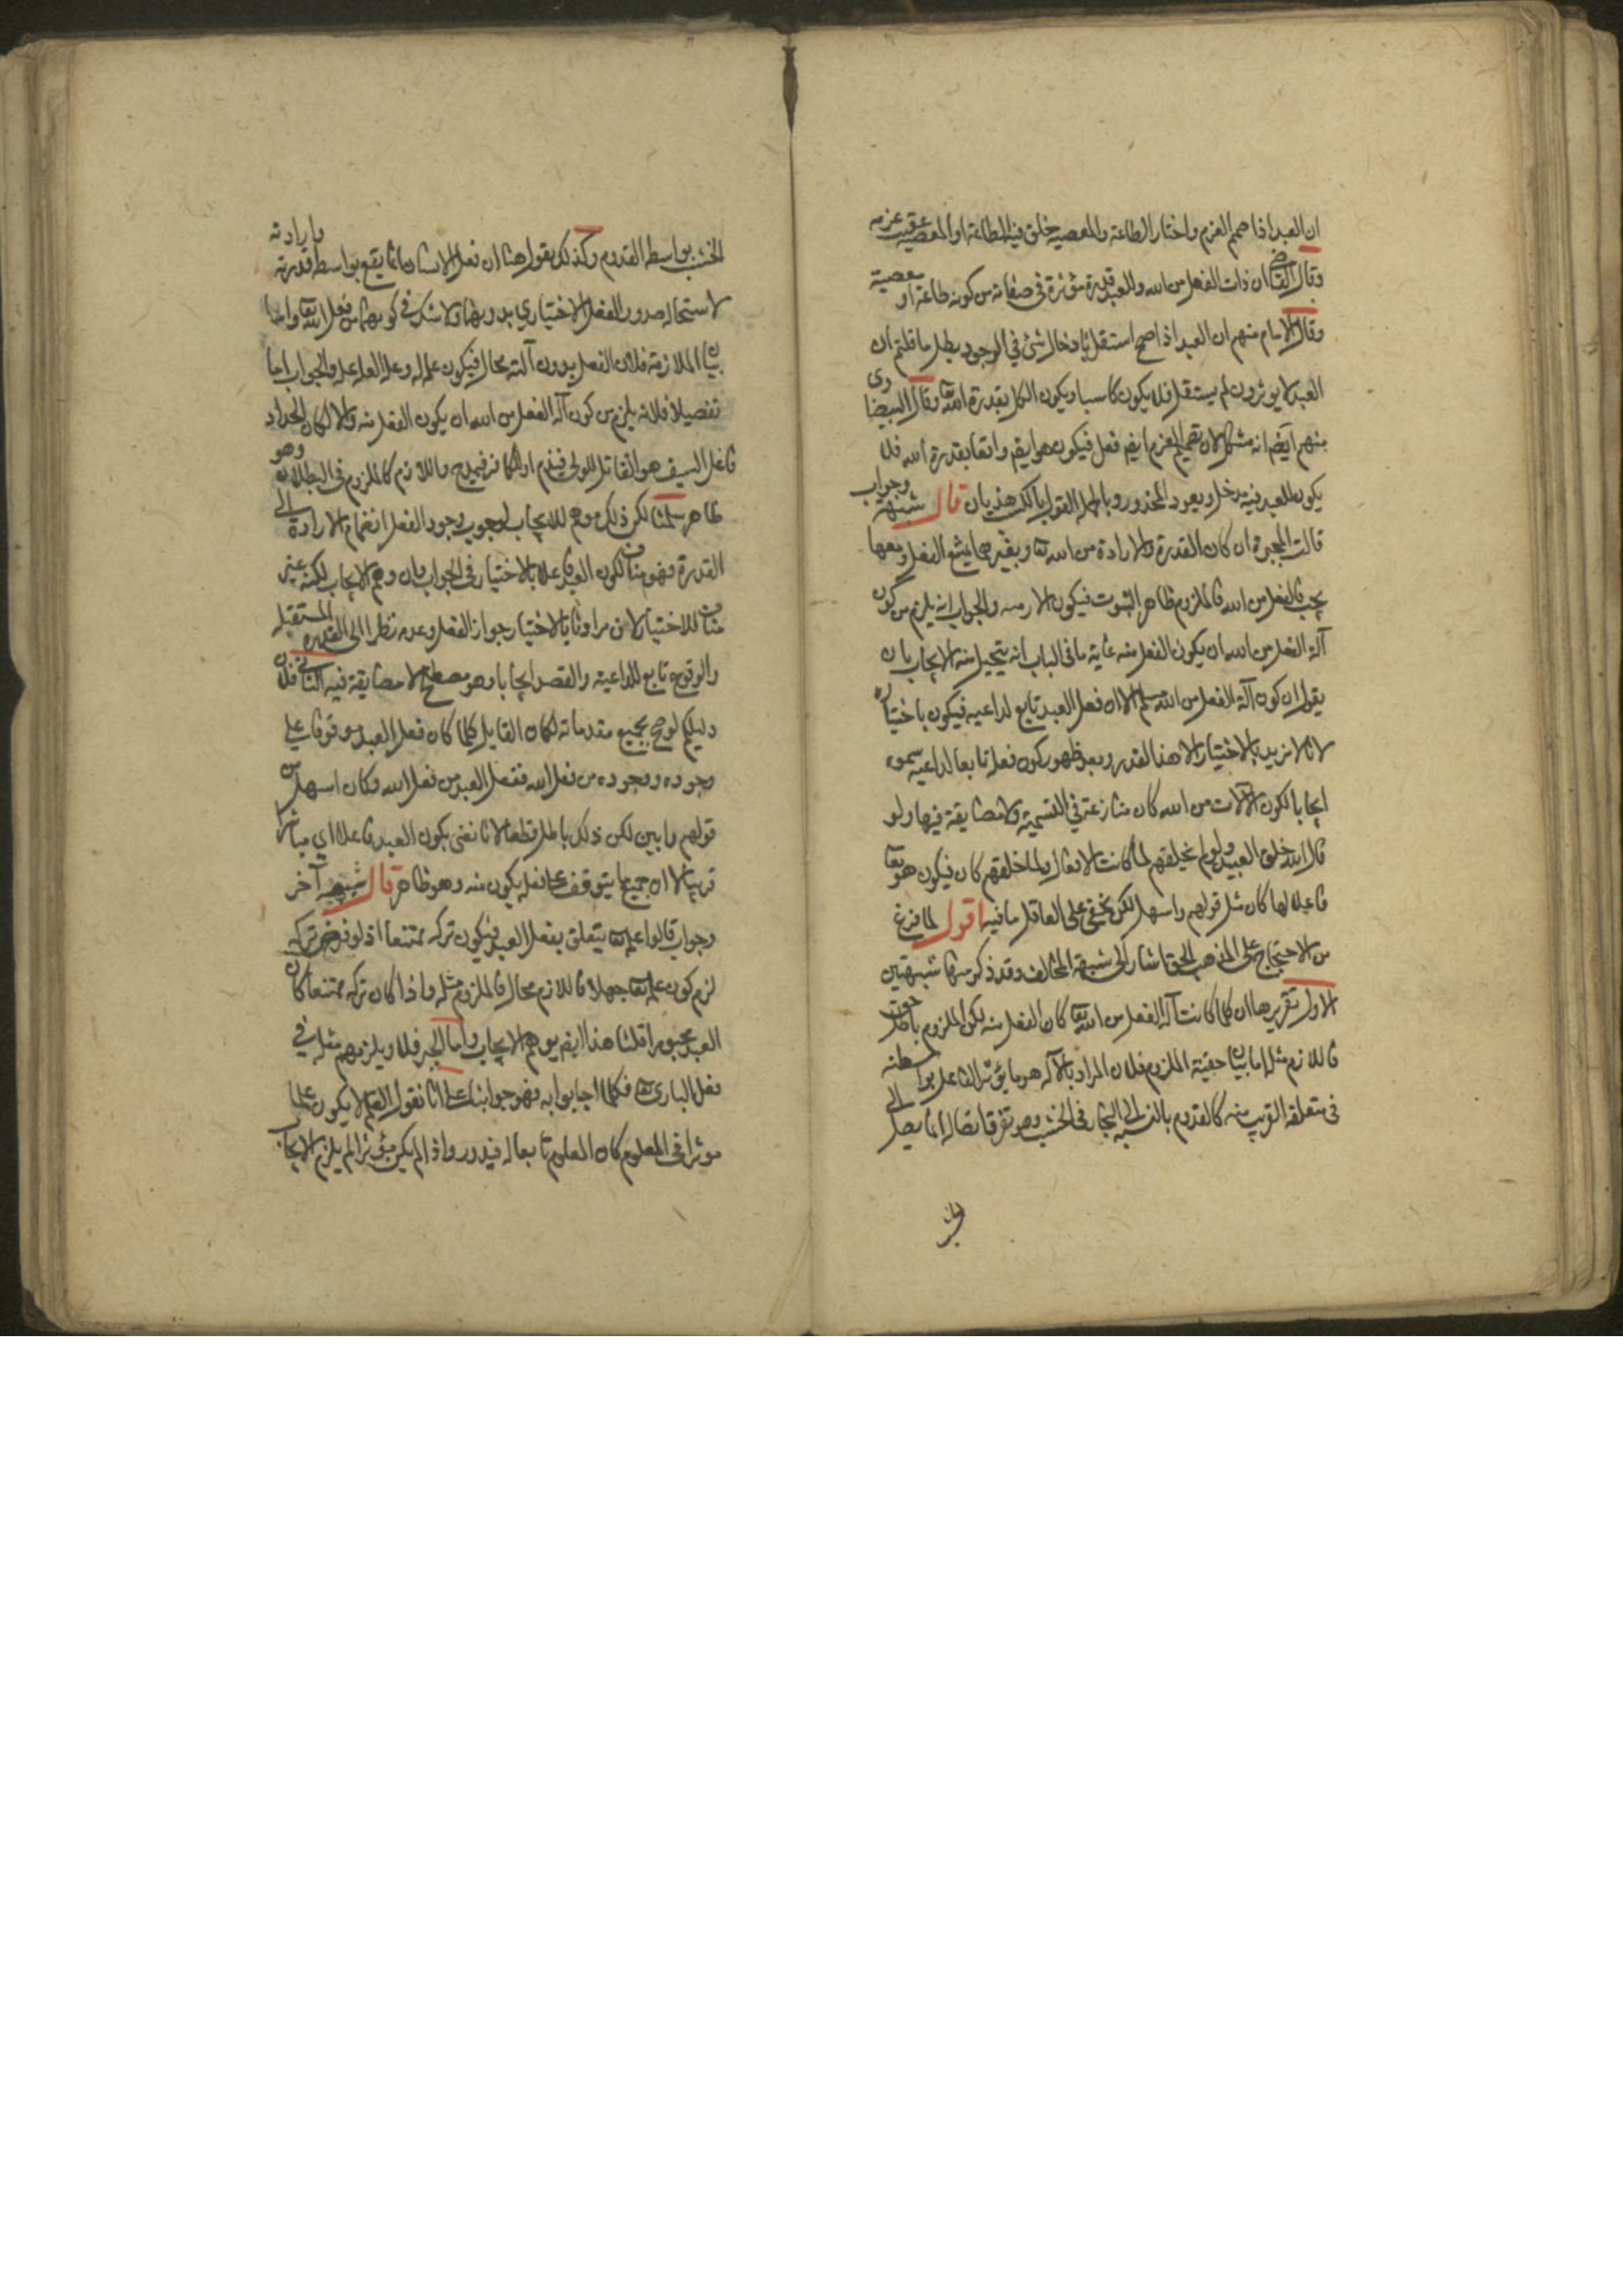 ان العبد اذا صمم العزم واختار الطاعة والمعصية يخلق فيه الطاعة او المعصية عقيب عزمه
وقال القاضي ان ذات الفعل من الله وللعبد قدرة مؤثرة فى صفاته من كونه طاعة او معصية
وقال الامام منهم ان العبد اذا صح استقلاله بادخال شئ في الوجود بطل ما قلتم ان
العبد لا يوثر وان لم يستقل فلا يكون كاسبا ويكون الكل بقدرة الله تعا وقال البيضاوى
منهم ايضم انه مشكل لان تصميم العزم ايضم فعل فيكون هو ايضم واقعا بقدرة الله فلا
يكون للعبد فيه مدخل ويعود المحذور وبالجملة القول بالكسب هذيان قال شبهة وجواب
قالت المجبرة ان كان القدرة والارادة من الله تعا وبغيرهما يمتنع الفعل ومعهما
يجب فالفعل من الله فالملزوم ظاهر الثبوت فيكون اللازم والجواب انه يلزم من كون
آلة الفعل من الله ان يكون الفعل منه غاية ما فى الباب انه يتخيل منه الايجاب بان
يقول ان كون آلة الفعل من الله مسلم الا ان فعل العبد تابع لداعيه فيكون باختياره
لانا لا نريد بالاختيار الا هذا القدر وبعد ظهور كون فعله تابعا لداعيه سموه
ايجابا لكون الآلات من الله كان منازعة في التسمية ولا مضايقة فيها ولو
قال الله خلق العبيد ولو لم يخلقهم لما كانت الافعال ولما خلقهم كان فيكون هو تعا
فاعلا لها كان مثل قولهم واسهل لكن يخفى على العاقل ما فيه اقول لما فرغ
من الاحتجاج على المذهب الحق اشار الى شبهة المخالف وقد ذكر منها شبهتين
الاول تقريرها ان كلما كانت آلة الفعل من الله تعا كان الفعل منه لكن الملزوم حق
فاللازم مثله اما بيان حقية الملزوم فلان المراد بالآلة هو ما يؤثر الفاعل بواسطته
فى متعلقه القريب منه كالقدوم بالنسبة الى النجار فى الخشب وهو تفرق اتصاله انما يصل الى
الخشب بواسطة القدوم وكذلك نقول هنا ان فعل الانسان انما يقع بواسطة قدرته وارادته
لاستحالة صدور الفعل الاختياري بدونهما ولا شك في كونهما من فعل الله تعا واما
بيان الملازمة فلان الفعل بدون آلته محال فيكون علة له وعلة العلة علة والجواب اما
تفصيلا فلانه يلزم من كون آلة الفعل من الله ان يكون الفعل منه والا لكان الحداد
فاعل السيف هو القاتل للولى فيذم او الكافر فيمدح واللازم كالملزوم فى البطلان وهو
ظاهر سلمنا لكن ذلك موهم للايجاب لوجوب وجود الفعل انضمام الارادة الى
القدرة فهو مناف لكون العبد فاعلا بالاختيار فى الجواب بان وهم الايجاب لكنه غير
مناف للاختيار لان مرادنا بالاختيار جواز الفعل وعدمه نظرا الى القدرة المستقبله
والوقوع تابع للداعية والقصد ايجابا وهو مصطلح لا مضايقة فيه الثانى فلان
دليلكم لو صح بجميع مقدماته لكان القايل كلما كان فعل العبد موقوفا على
وجوده ووجوده من فعل الله ففعل العبد من فعل الله وكان اسهل من
قولهم وابين لكن ذلك باطل قطعا لانا نعنى بكون العبد فاعلا اي مباشرا
قريبا لا ان جميع ما يتوقف عليه فعله يكون منه وهو ظاهر قال شبهة آخر
وجواب قالوا علمه تعا يتعلق بفعل العبد فيكون تركه ممتنعا اذ لو فرض تركه
لزم كون علمه تعا جهلا فاللازم محال فالملزوم مثله واذا كان تركه ممتنعا كان
العبد مجبورا قلنا هذا ايضم يوهم الايجاب واما الجبر فلا ويلزمهم مثله في
فعل البارى تعا فكلما اجابوا به فهو جوابنا على انا نقول العلم لا يكون علما
موثرا فى المعلوم كان المعلوم تابعا له فيدور واذا لم يكن مؤثرا لم يلزم الايجاب